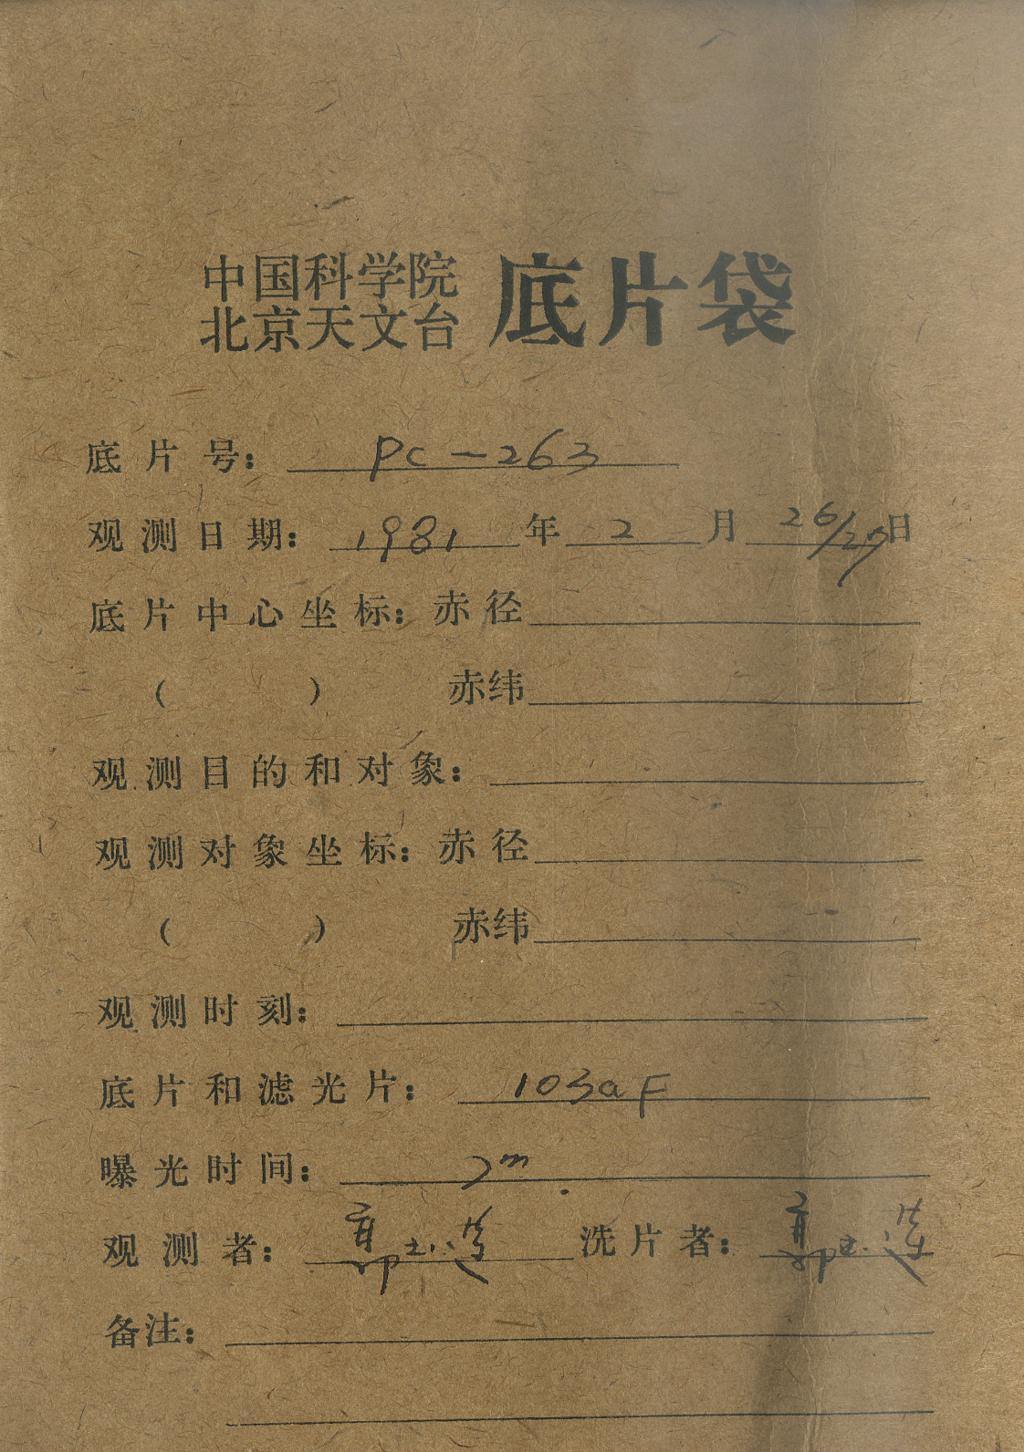 中国科学院
北京天文台 底片袋
底片号: PC-263
观测日期: 1981年 2月 26/27日
底片中心坐标: 赤径
( ) 赤纬
观测目的和对象:
观测对象坐标: 赤径
( ) 赤纬
观测时刻:
底片和滤光片: 103aF
曝光时间: 2m
观测者: 洗片者:
备注: